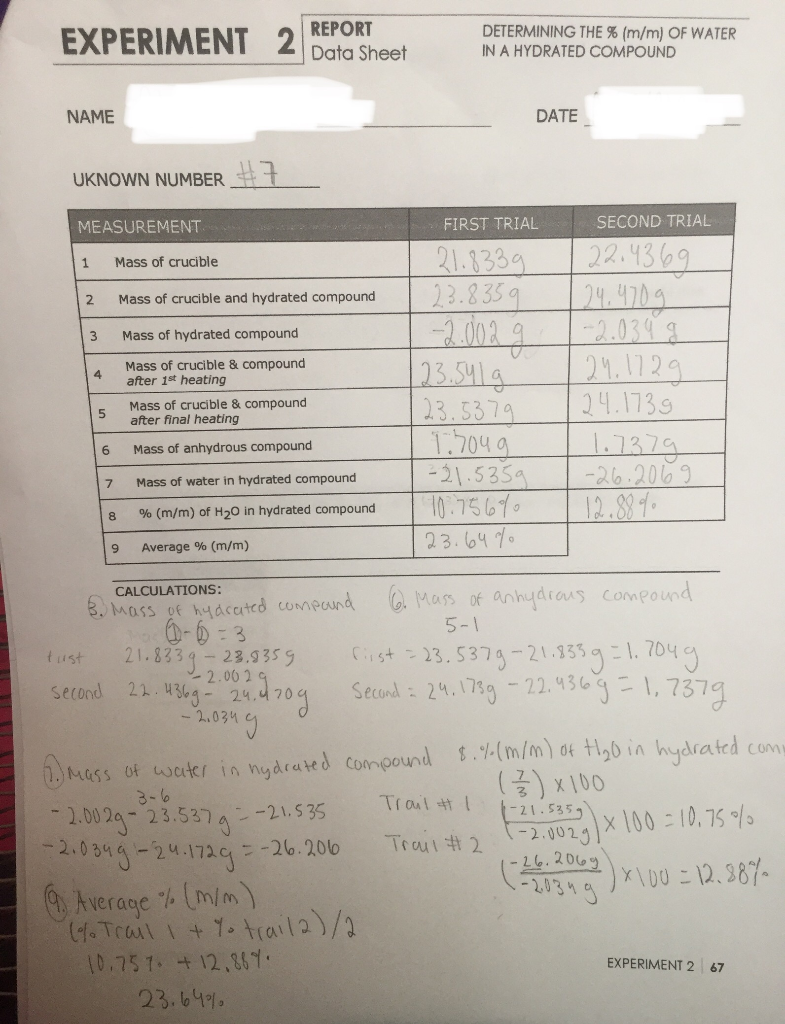 EXPERIMENT 2 REPORT Data Sheet
DETERMINING THE % (m/m) OF WATER
IN A HYDRATED COMPOUND
NAME
DATE
UKNOWN NUMBER #7
MEASUREMENT FIRST TRIAL SECOND TRIAL
1 Mass of crucible 21.833g 22.436g
2 Mass of crucible and hydrated compound 23.835g 24.470g
3 Mass of hydrated compound -2.002 g -2.034 g
4 Mass of crucible & compound after 1st heating 23.541g 24.172g
5 Mass of crucible & compound after final heating 23.537g 24.173g
6 Mass of anhydrous compound 1.704g 1.737g
7 Mass of water in hydrated compound -21.535g -26.206g
8 % (m/m) of H2O in hydrated compound 10.756% 12.88%
9 Average % (m/m) 23.64%
CALCULATIONS:
3. Mass of hydrated compound
= 3
first 21.833g - 23.835g
- 2.002g
second 22.436g - 24.470g
- 2.034 g
6. Mass of anhydrous compound
5-1
first = 23.537g - 21.833g = 1.704g
Second = 24.173g - 22.436g = 1,737g
7. Mass of water in hydrated compound
3-6
-2.002g - 23.537g = -21.535
-2.034g - 24.172g = -26.206
8. % (m/m) of H2O in hydrated com
(7/3) x 100
Trail # 1 (-21.535g/-2.002g) x 100 = 10.75%
Trail # 2 (-26.206g/-2.034g) x 100 = 12.88%
9. Average % (m/m)
(% Trail 1 + % trail 2) / 2
10.75% + 12.88%
23.64%
EXPERIMENT 2 | 67